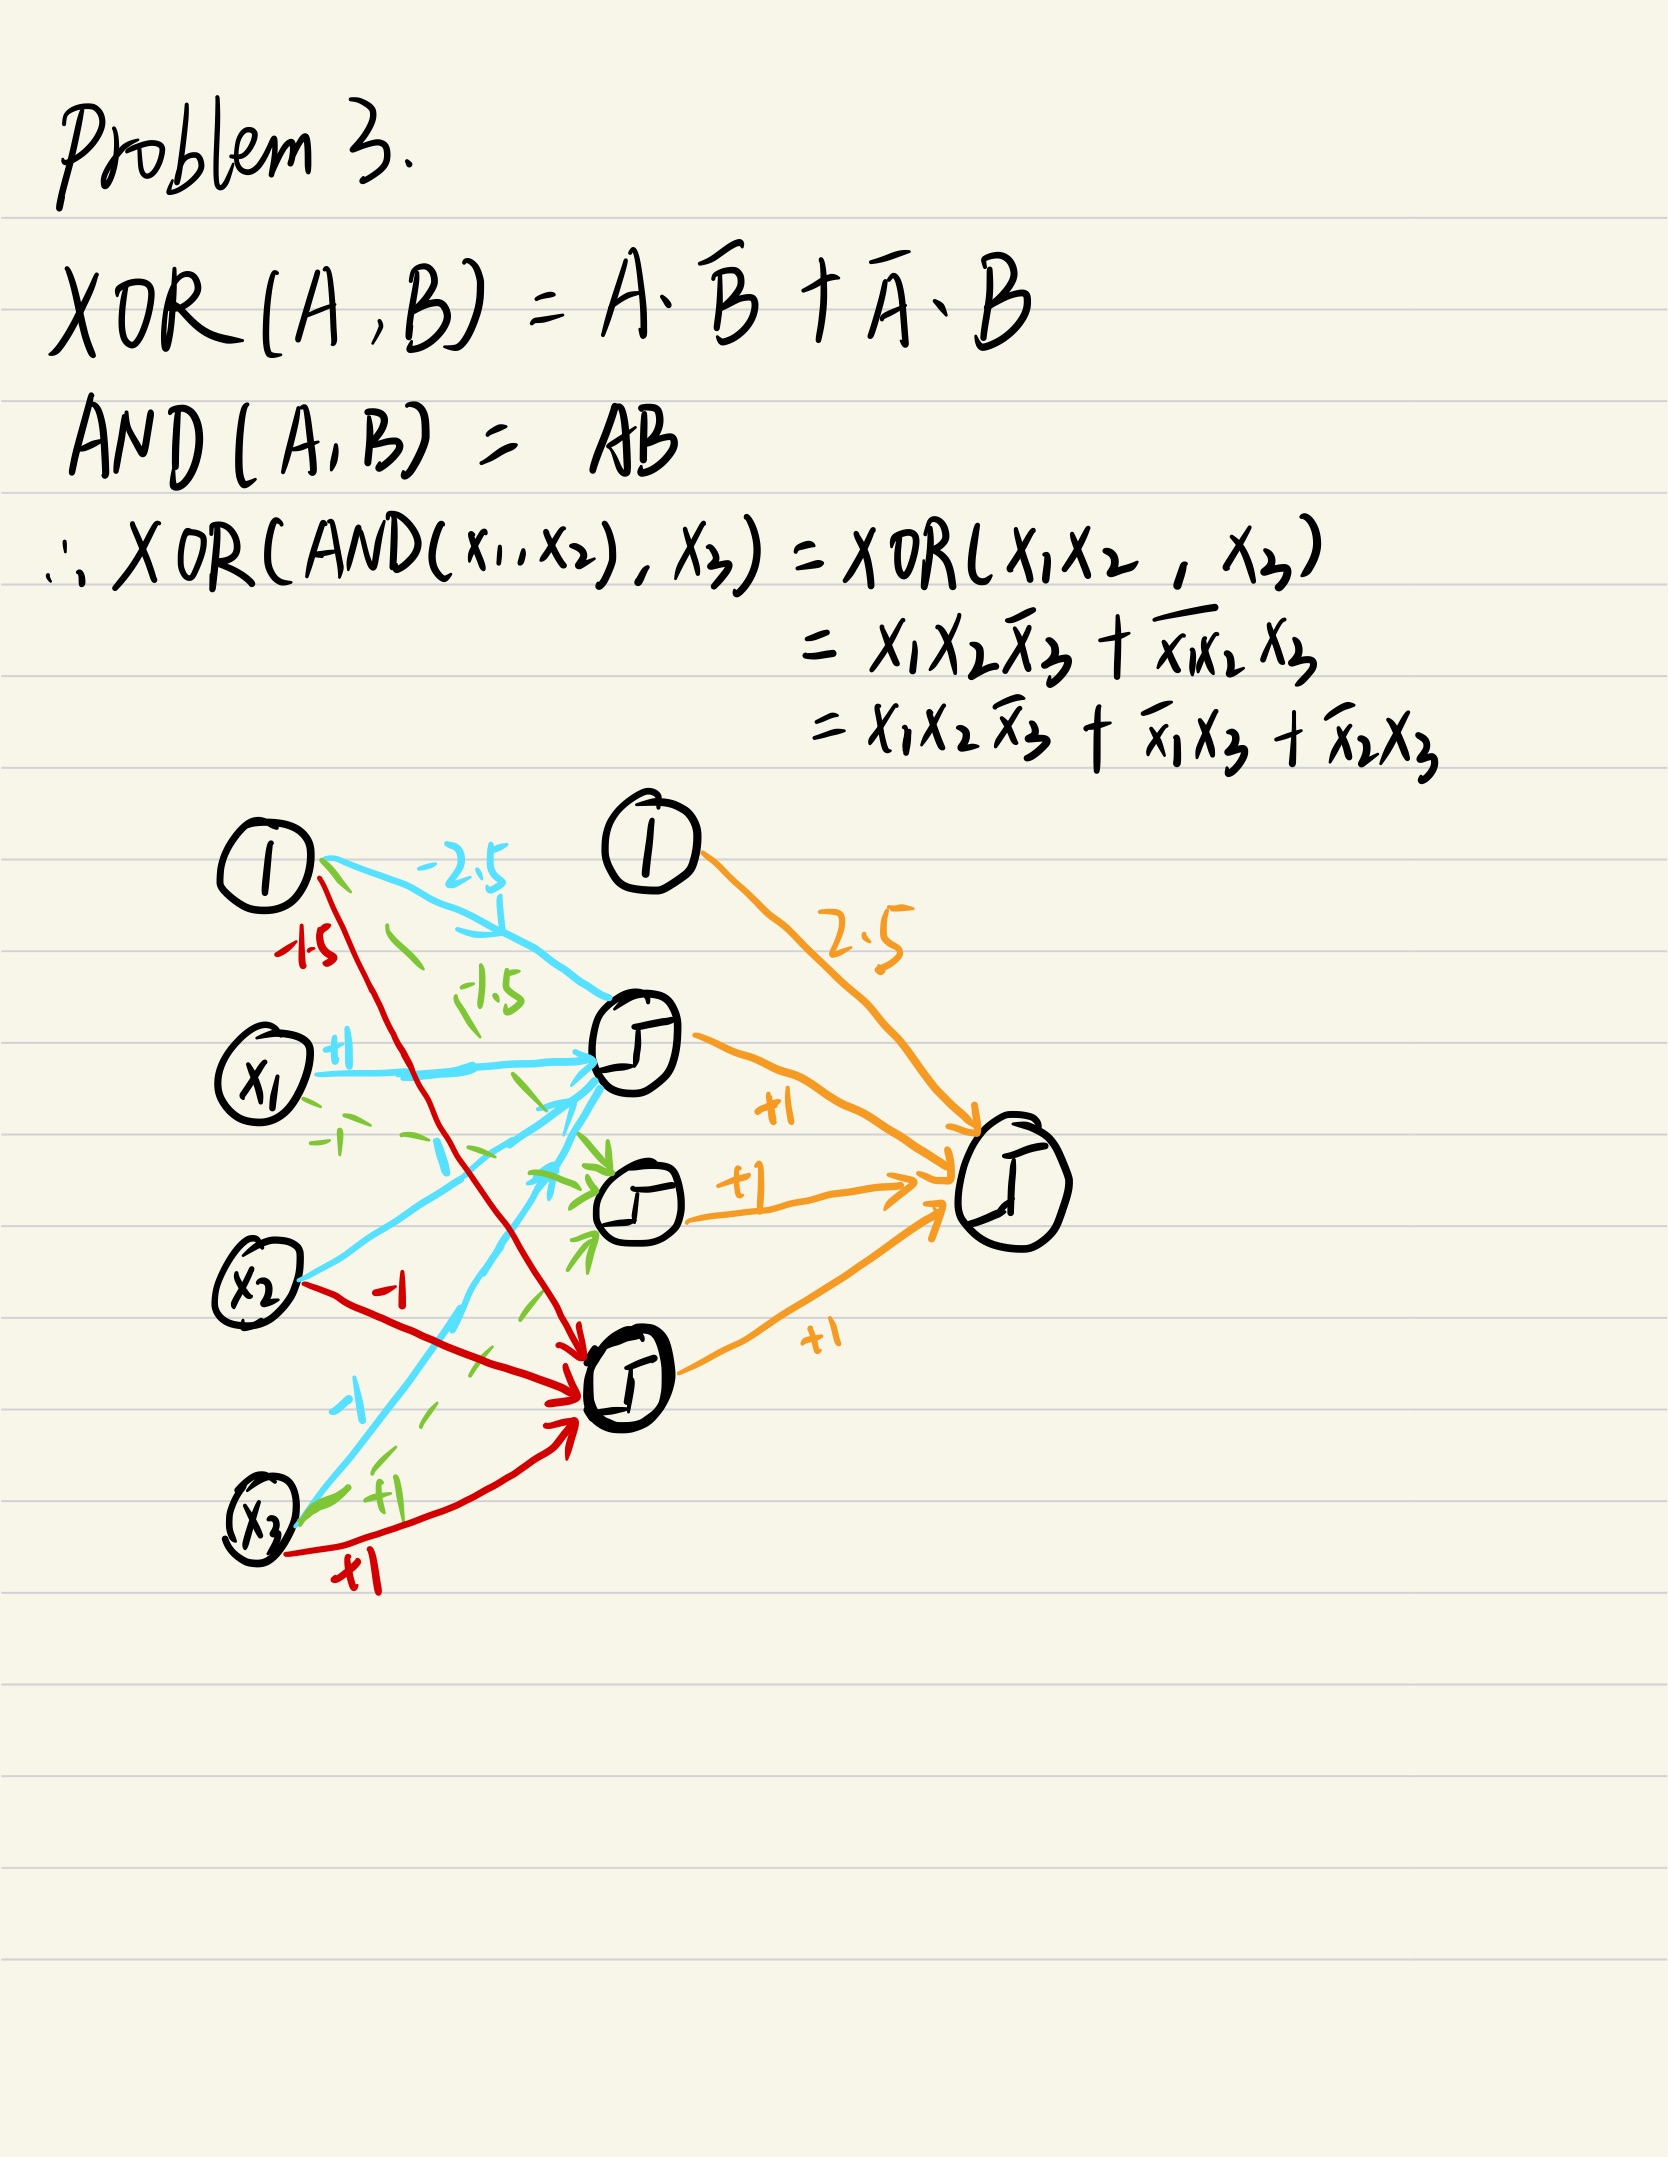 Problem 3.
XOR(A,B) = A·B̅ + A̅·B
AND(A,B) = AB
∴ XOR(AND(x₁,x₂), x₃) = XOR(x₁x₂, x₃)
= x₁x₂x̅₃ + x̅₁x̅₂̅ x₃
= x₁x₂x̅₃ + x̅₁x₃ + x̅₂x₃
1
1
-2.5
2.5
-1.5
-1.5
x₁
+1
+1
-1
1
+1
x₂
-1
+1
-1
x₃
+1
+1